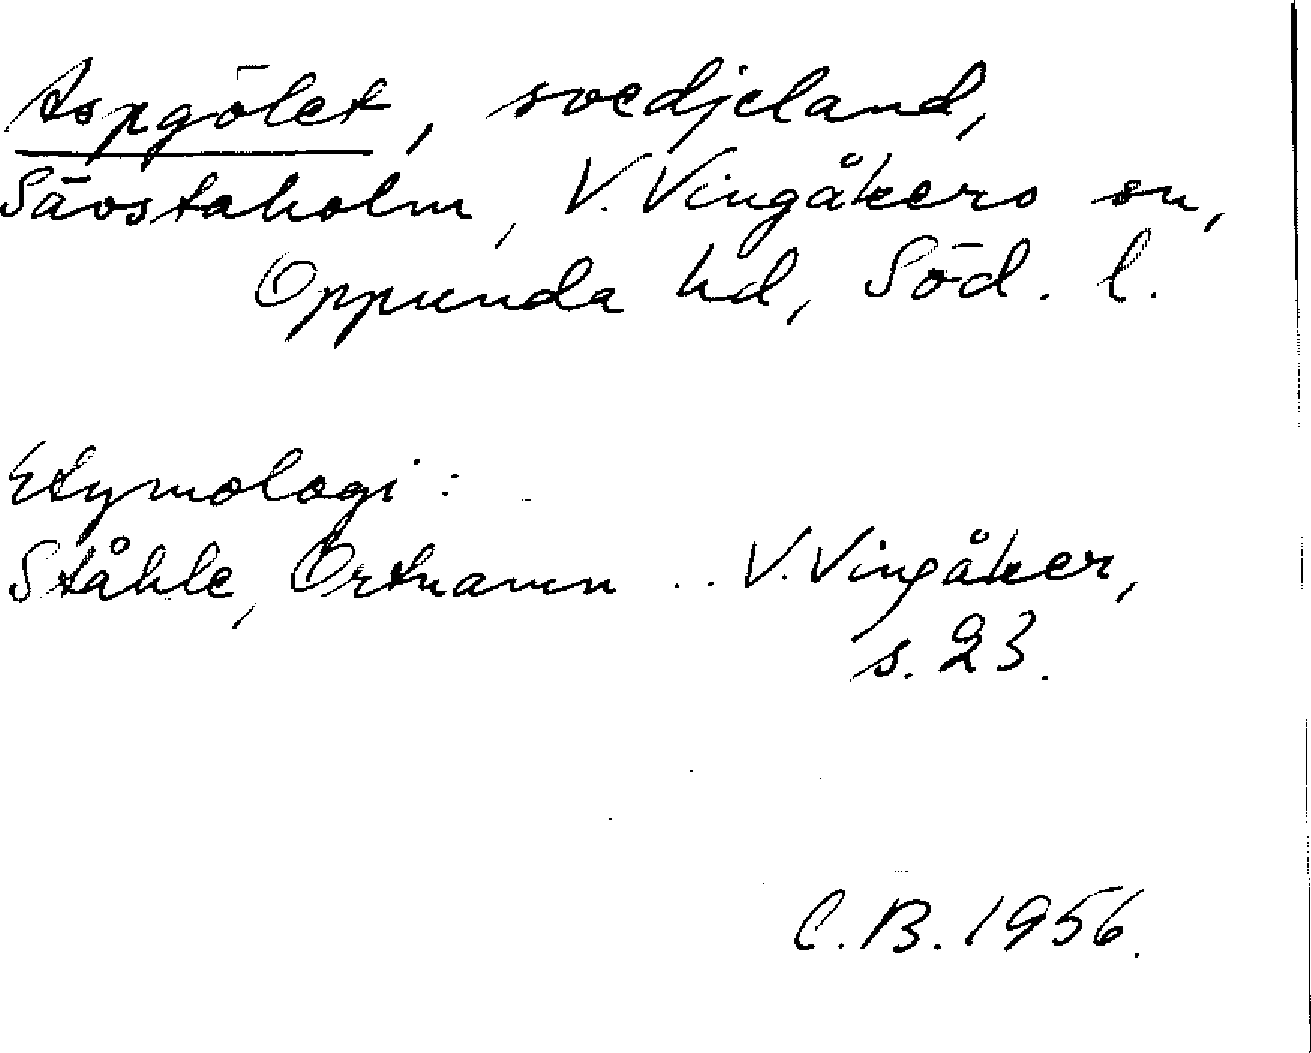 Aspgölet, svedjeland,
Sävstaholm, V. Vingåkers sn,
Oppunda hd, Söd. l.
Etymologi:
Ståhle, Ortnamn .. V. Vingåker,
s. 23.
C.B. 1956.